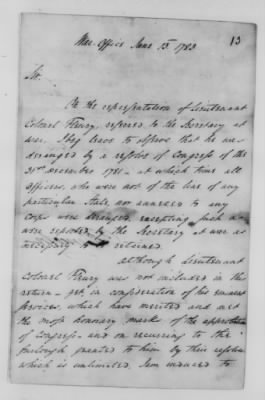 13
War Office June 13 1783
Sir,
On the representation of Lieutenant
Colonel Fleury, referred to the Secretary at
war, I beg leave to observe that he was
deranged by a resolve of Congress of the
31st December 1781 - at which time all
officers, who were not of the line of any
particular State, nor annexed to any
Corps were deranged, excepting such as
were reported by the Secretary at war as
necessary to be retained.
although Lieutenant
Colonel Fleury was not included in this
return - yet in consideration of his
services, which have merited and met
the most honorary marks of the approbation
of Congress - and on recurring to the
furlough granted to him by their resolve
which is unlimited, I am induced to